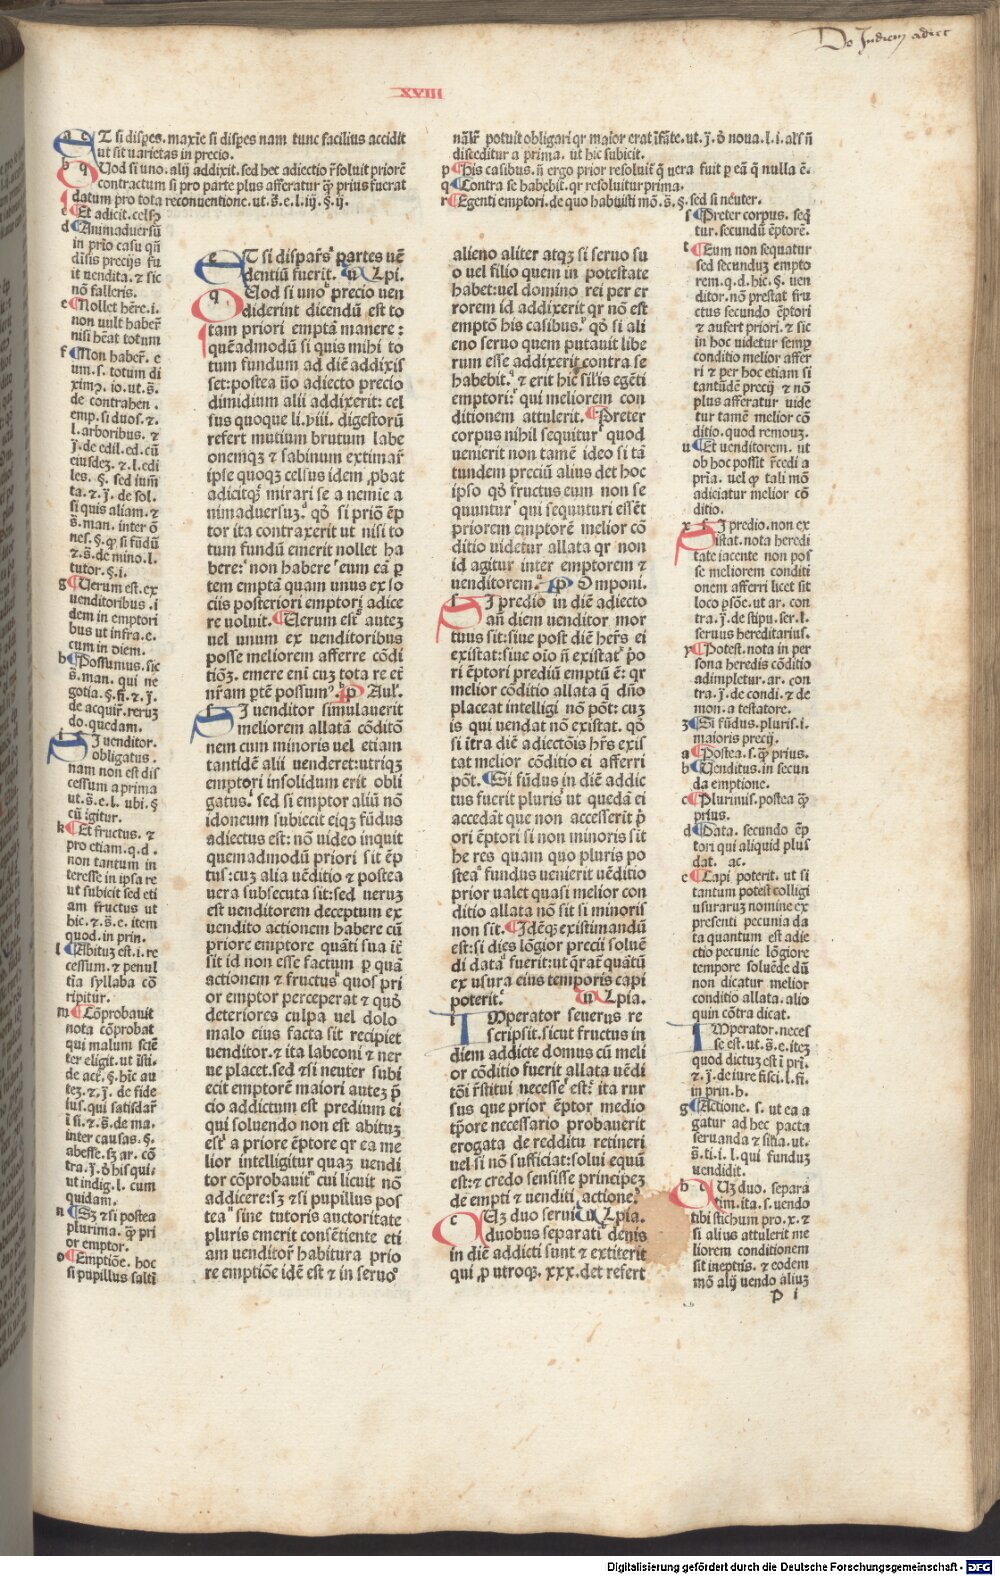 De Indiem adiect
XVIII
ET si dispes. maxie si dispes nam tunc facilius accidit
ut sit uarietas in precio.
QUod si uno. alij addixit. sed hec adiectio r̄soluit priorē
contractum si pro parte plus afferatur ꝙ prius fuerat
datum pro tota reconuentione. ut. s̄. e. l. iij. §. ij.
Et adicit. celsꝰ
Animaduersū
in prīo casu qn̄
dīsis precijs fu
it vendita. ⁊ sic
nō falleris.
Nollet hēre. i.
non uult haber̄
nisi hēat totum
Non haber̄. e
um. s. totum di
de contrahen.
emp. si duos. ⁊.
l. arboribus. ⁊
j̄. de edil. ed. cū
eiusdeꝫ. ⁊. l. edi
les. §. sed ium̄
ta. ⁊. j̄. de sol.
si quis aliam. ⁊
s̄. man. inter ō
nes. §. ꝙ si fūdū
⁊. s̄. de mino. l.
tutor. §. i.
Uerum est. ex
uenditoribus. i
dem in emptori
bus ut infra. e.
cum in diem.
Possumus. sic
s̄. man. qui ne
gotia. §. fi. ⁊. j̄.
de acquir̄. reruꝫ
do. quedam.
SI uenditor.
obligatus.
nam non est dis
cessum a prima
ut. s̄. e. l. ubi. §
cū igitur.
Et fructus. ⁊
pro etiam. q. d.
non tantum in
teresse in ipsa re
ut subicit sed eti
am fructus ut
hic. ⁊. s̄. e. item
quod. in prin.
Abituꝫ est. i. re
cessum. ⁊ penul
tia syllaba cō
ripitur.
Cōprobauit
nota cōprobat
qui malum sciē
ter eligit. ut īsti.
de act̄. §. hīc au
teꝫ. ⁊. j̄. de fide
ius. qui satisdar̄
ī fi. ⁊. s̄. de ma.
inter causas. §.
abesse. sꝫ ar. cō
tra. j̄. ō his qui.
ut indig. l. cum
quidam.
Sꝫ ⁊ si postea
plurima. ꝙ pri
or emptor.
Emptiōe. hoc
si pupillus saltī
ET si dispar̄s partes uē
dentiū fuerit. Ulpi.
QUod si uno precio uen
diderint dicendū est to
tam priori emptā manere :
quēadmodū si quis mihi to
tum fundum ad diē addixis
set: postea u̅o adiecto precio
dimidium alii addixerit: cel
sus quoque li. viii. digestorū
refert mutium brutum labe
onemqꝫ ⁊ sabinum extimar̄
ipse quoqꝫ celsus idem ꝓbat
adicitqꝫ mirari se a nemīe a
nimaduersuꝫ. qꝺ si priō ēp
tor ita contraxerit ut nisi to
tum fundū emerit nollet ha
bere: non habere eum eā ꝑ
tem emptā quam unus ex so
ciis posteriori emptori adice
re uoluit. Uerum est auteꝫ
uel unum ex uenditoribus
posse meliorem afferre cōdi
tiōꝫ. emere eni cuꝫ tota re et
nr̄am ptē possumꝰ. Paul.
SI uenditor simulauerit
meliorem allatā cōditō
nem cum minoris uel etiam
tantidē alii uenderet: utriqꝫ
emptori insolidum erit obli
gatus. sed si emptor aliū nō
idoneum subiecit eiqꝫ fūdus
adiectus est: nō video inquit
quemadmodū priori sit ēp
tus: cuꝫ alia uēditio ⁊ postea
uera subsecuta sit: sed uerus
est uenditorem deceptum ex
uendito actionem habere cū
priore emptore quāti sua īt̄
sit id non esse factum ꝑ quā
actionem ⁊ fructus quos pri
or emptor perceperat ⁊ quo
deteriores culpa vel dolo
malo eius facta sit recipiet
uenditor. ⁊ ita labeoni ⁊ ner
ue placet. sed ⁊ si neuter subi
ecit emptorem maiori autez p̄
cio addictum est predium ei
qui soluendo non est abituꝫ
est a priore ēptore qr ea me
lior intelligitur quaꝫ uendi
tor cōprobauit cui licuit nō
addicere: sꝫ ⁊ si pupillus pos
tea sine tutoris auctoritate
pluris emerit consētiente eti
am uenditor̄ habitura prio
re emptiōe idē est ⁊ in seruo
nālr̄ potuit obligari qr maior erat īfāte. ut. j̄. ō noua. l. i. als n̄
disceditur a prima. ut hic subicit.
His casibus. n̄ ergo prior resoluit̄ ꝗ uera fuit ꝑ eā ꝗ nulla ē.
Contra se habebit. qr resoluitur prima.
Egenti emptori. de quo habuisti mō. s̄. §. sed si neuter.
alieno aliter atqꝫ si seruo su
o uel filio quem in potestate
habet: vel domino rei per er
rorem id addixerit qr nō est
emptō his casibus. qꝺ si ali
eno seruo quem putauit libe
rum esse addixerit contra se
habebit. ⁊ erit hic silis egēti
emptori: qui meliorem con
ditionem attulerit. Preter
corpus nihil sequitur quod
uenierit non tamē ideo si tā
tundem preciū alius det hoc
ipso qꝺ fructus eum non se
quuntur qui sequnturi essēt
priorem emptorē melior cō
ditio uidetur allata qr non
id agitur inter emptorem ⁊
uenditorem. Pomponi.
SI predio in diē adiecto
an̄ diem uenditor mor
tuus sit: siue post diē her̄s ei
existat: siue oio n̄ existat p̄o
ri ēptori prediū emptū ē: qr
melior cōditio allata ꝗ dn̄o
placeat intelligi nō pōt: cuꝫ
is qui uendat nō existat. qꝺ
si itra diē adiectōis hr̄s exis
tat melior cōditio ei afferri
pōt. Si fūdus in diē addic
tus fuerit pluris ut quedā ei
accedāt que non accesserit p̄
ori ēptori si non minoris sit
he res quam quo pluris po
stea fundus uenierit uēditio
prior ualet quasi melior con
ditio allata nō sit si minoris
non sit. Idēqꝫ existimandū
est: si dies lōgior precii soluē
di data fuerit: ut q̄rat̄ quātū
ex usura eius temporis capi
poterit. Ulpia.
IMperator seuerus re
scripsit. sicut fructus in
diem addicte domus cū meli
or cōditio fuerit allata uēdi
tōi r̄stitui necesse est: ita rur
sus que prior ēptor medio
tp̄ore necessario probauerit
erogata de redditu retineri
uel si nō sufficiat: solui equū
est: ⁊ credo sensisse principeꝫ
de empti ⁊ uenditi actione.
CUꝫ duo serui Ulpia.
duobus separati denis
in diē addicti sunt ⁊ extiterit
qui ꝓ utroqꝫ. xxx. det refert
Preter corpus. seq̄
tur. secundū ēptorē.
Eum non sequatur
sed secunduꝫ empto
rem. q. d. hic. §. uen
ditor. nō prestat fru
ctus secundo ēptori
⁊ aufert priori. ⁊ sic
in hoc uidetur semꝑ
conditio melior affer
ri ⁊ per hoc etiam si
tantūdē precij ⁊ nō
plus afferatur uide
tur tamē melior cō
ditio. quod remouꝫ.
Et uenditorem. ut
ob hoc possit r̄cedi a
pria. uel ꝙ tali mō
adiciatur melior cō
ditio.
SI predio. non ex
istat. nota heredi
tate iacente non pos
se meliorem conditi
onem afferri licet sit
loco ꝑsōe. ut ar. con
tra. j̄. de stipu. ser. l.
seruus hereditarius.
Potest. nota in per
sona heredis cōditio
adimpletur. ar. con
tra. j̄. de condi. ⁊ de
mon. a testatore.
Si fūdus. pluris. i.
maioris precij.
Postea. s. ꝙ prius.
Uenditus. in secun
da emptione.
Plurimis. postea ꝙ
prius.
Data. secundo ēp
tori qui aliquid plus
dat. ac.
Capi poterit. ut si
tantum potest colligi
usuraruꝫ nomine ex
presenti pecunia da
ta quantum est adie
ctio pecunie lōgiore
tempore soluēde dū
non dicatur melior
conditio allata. alio
quin cōtra dicat.
IMperator. neces
se est. ut. s̄. e. iteꝫ
quod dictuꝫ est ī prī.
⁊. j̄. de iure fisci. l. fī.
in prin. h.
Actione. s. ut ea a
gatur ad hec pacta
seruanda ⁊ silia. ut.
s̄. ti. i. l. qui funduꝫ
uendidit.
CUꝫ duo. separa
tim. ita. s. uendo
tibi stichum pro. x. ⁊
si alius attulerit me
liorem conditionem
sit ineptus. ⁊ eodem
mō alij uendo aliuꝫ
p i
Digitalisierung gefördert durch die Deutsche Forschungsgemeinschaft - DFG